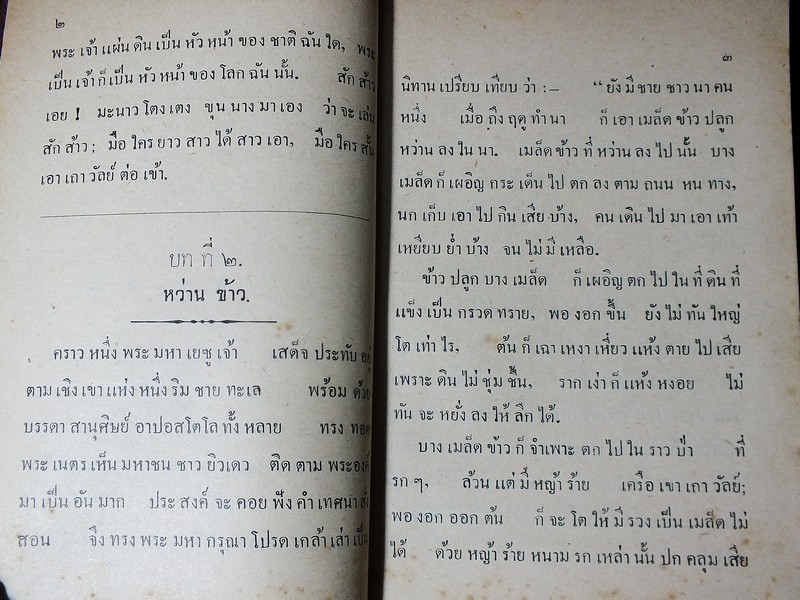 ๒
พระ เจ้า แผ่น ดิน เป็น หัว หน้า ของ ชาติ ฉัน ใด, พระ
เป็น เจ้า ก็ เป็น หัว หน้า ของ โลก ฉัน นั้น. สัก ส้าว
เอย ! มะนาว โตง เตง ขุน นาง มา เอง ว่า จะ เล่น
สัก ส้าว; มือ ใคร ยาว สาว ได้ สาว เอา, มือ ใคร สั้น
เอา เถา วัลย์ ต่อ เข้า.
บท ที่ ๒.
หว่าน ข้าว.
คราว หนึ่ง พระ มหา เยซู เจ้า เสด็จ ประทับ อยู่
ตาม เชิง เขา แห่ง หนึ่ง ริม ชาย ทะเล พร้อม ด้วย
บรรดา สานุศิษย์ อาปอสโตโล ทั้ง หลาย ทรง ทอด
พระ เนตร เห็น มหาชน ชาว ยิวเดว ติด ตาม พระองค์
มา เป็น อัน มาก ประ สงค์ จะ คอย ฟัง คำ เทศนา สั่ง
สอน จึง ทรง พระ มหา กรุณา โปรด เกล้า เล่า เป็น
๓
นิทาน เปรียบ เทียบ ว่า :— “ ยัง มี ชาย ชาว นา คน
หนึ่ง เมื่อ ถึง ฤดู ทำ นา ก็ เอา เมล็ด ข้าว ปลูก
หว่าน ลง ใน นา. เมล็ด ข้าว ที่ หว่าน ลง ไป นั้น บาง
เมล็ด ก็ เผอิญ กระ เด็น ไป ตก ลง ตาม ถนน หน ทาง,
นก เก็บ เอา ไป กิน เสีย บ้าง, คน เดิน ไป มา เอา เท้า
เหยียบ ย่ำ บ้าง จน ไม่ มี เหลือ.
ข้าว ปลูก บาง เมล็ด ก็ เผอิญ ตก ไป ใน ที่ ดิน ที่
แข็ง เป็น กรวด ทราย, พอ งอก ขึ้น ยัง ไม่ ทัน ใหญ่
โต เท่า ไร, ต้น ก็ เฉา เหงา เหี่ยว แห้ง ตาย ไป เสีย
เพราะ ดิน ไม่ ชุ่ม ชื้น, ราก เง่า ก็ แห้ง หงอย ไม่
ทัน จะ หยั่ง ลง ให้ ลึก ได้.
บาง เมล็ด ข้าว ก็ จำเพาะ ตก ไป ใน ราว ป่า ที่
รก ๆ, ล้วน แต่ มี หญ้า ร้าย เครือ เขา เถา วัลย์;
พอ งอก ออก ต้น ก็ จะ โต ให้ มี รวง เป็น เมล็ด ไม่
ได้ ด้วย หญ้า ร้าย หนาม รก เหล่า นั้น ปก คลุม เสีย